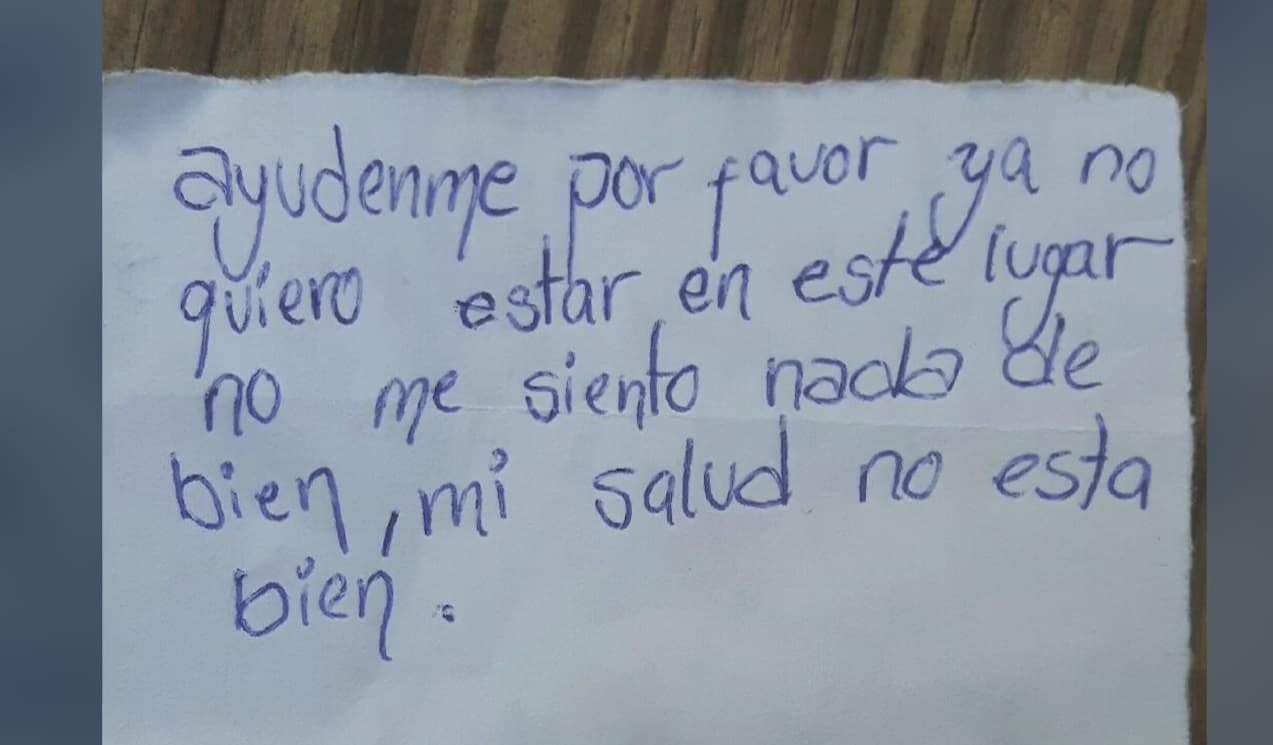 ayudenme por favor ya no
quiero estar en este lugar
no me siento nada de
bien, mi salud no esta
bien.